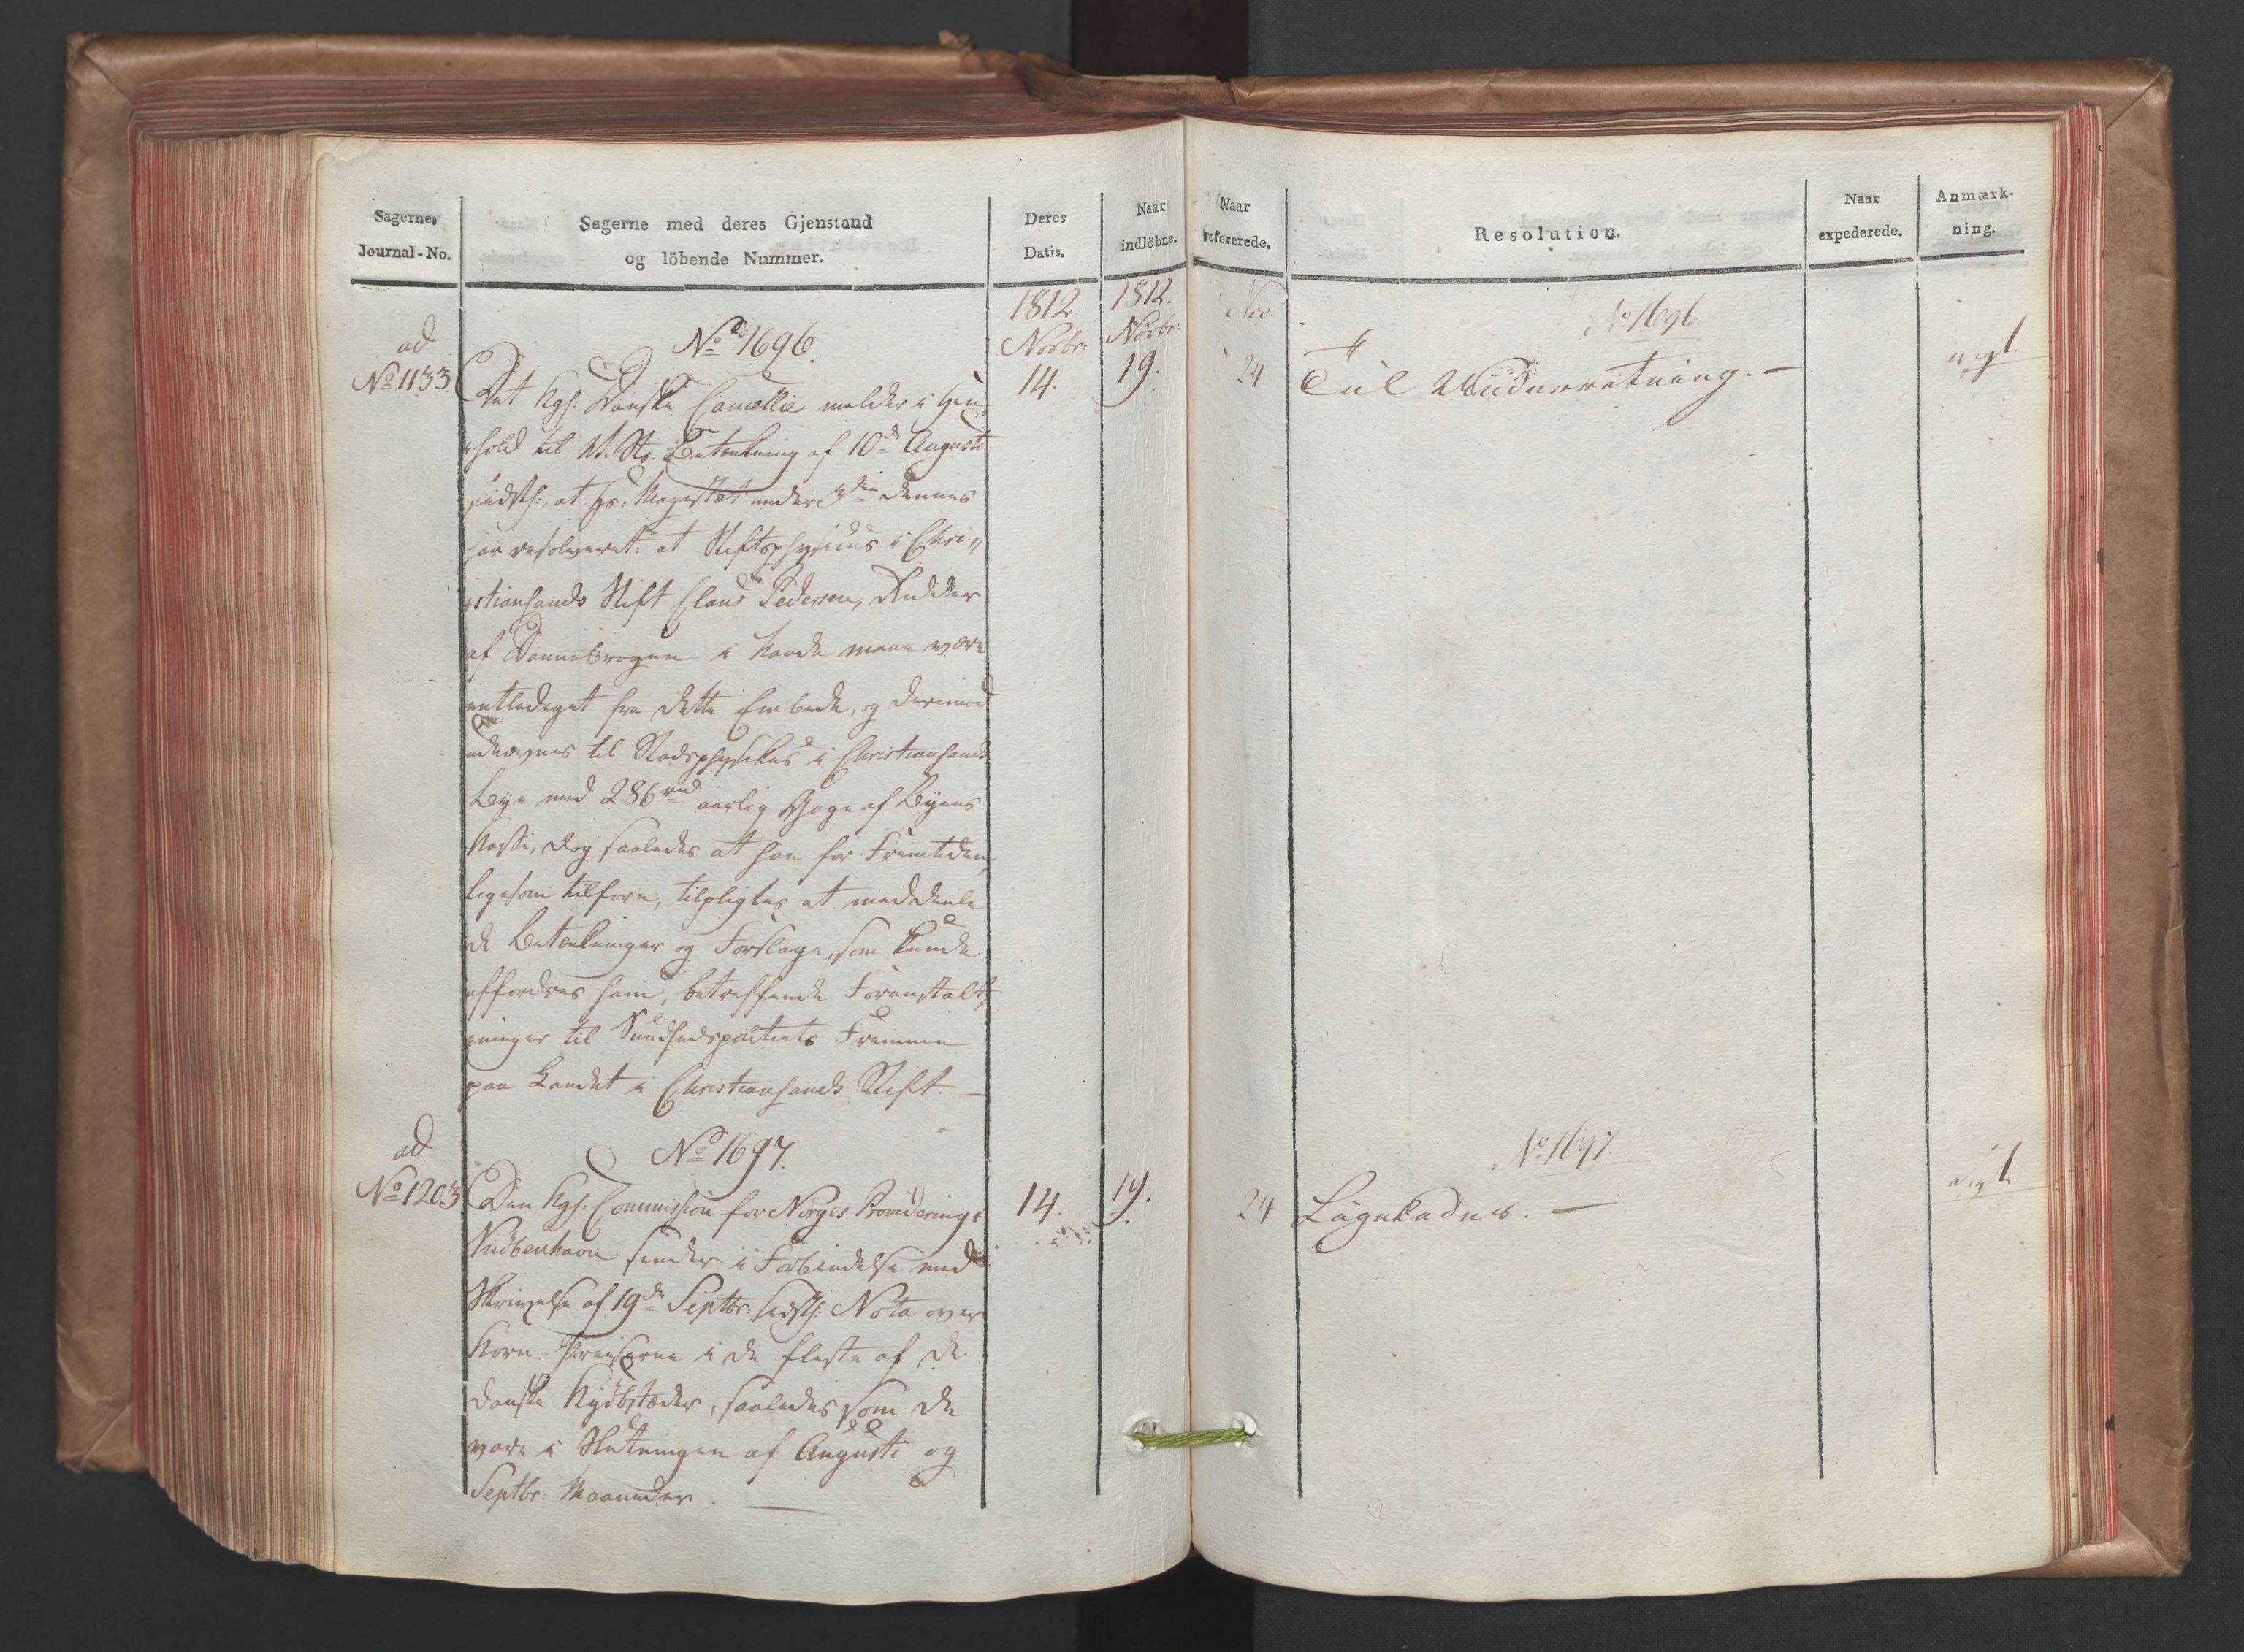 Sagernes
Journal-No.
Sagerne med deres Gjenstand
og löbende Nummer.
Deres
Datis.
Naar
indlöbne.
1812
Novbr:
1812.
Novbr:
ad
No 1133
No 1696.
14.
19.
Det Kgl: Danske Cancellie melder i Hen-
hold til N. St. Betænkning af 10de Augusti
sidstl:, at Hs: Majestæt under 3die dennes
har resolveret: at Stiftsphysicus i Chri„
stiansands Stift Claus Pedersen, Ridder
af Dannebrogen i Naade maae være
entlediget fra dette Embede, og derimod
udnævnes til Stadsphysikus i Christiansands
Bye med 286 rd aarlig Gage af Byens
Kasse, dog saaledes at han for Fremtiden,
ligesom tilforn, tilpligtes at meddeele
de Betænkninger og Forslage, som kunde
affordres ham, betreffende Foranstalt-
ninger til Sundhedspolitiets Fremme
paa Landet i Christiansands Stift. —
ad
No 1203
No 1697.
14.
19.
Den Kgl: Commission for Norges Providering i
Kiöbenhavn sender i Forbindelse med
Skrivelse af 19de Septbr: sidstl: Nota over
Korn-Priiserne i de fleste af de
danske Kjöbstæder, saaledes som de
vare i Slutningen af Augusti og
Septbr: Maaneder. —
Naar
refererede.
Resolution.
Naar
expederede.
Anmærk-
ning.
Nov.
No 1696
24
Til Underretning. —
No 1697
24
Henlægges. —